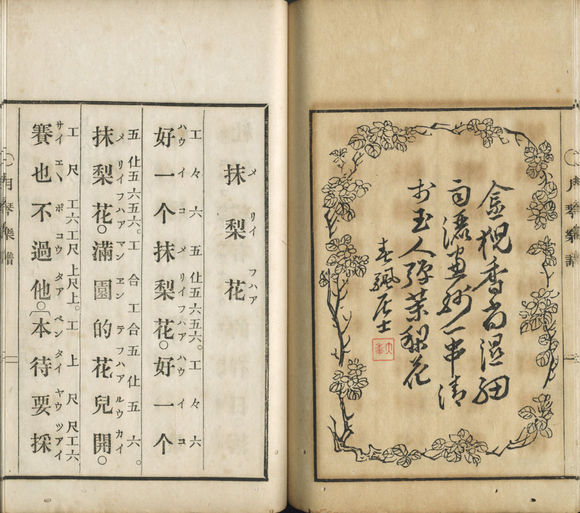 金猊香尚温細
一串清
於玉人弾茉梨花
春颿居士
月琴樂譜
抹梨花
メ リイ フハア
工々六五仩五六五六。工々六
好一个抹梨花。好一个
ハウ イ コ メ リイ フハア ハウ イ コ
五仩五六五六。工合工合五仩五六
抹梨花。滿園的花兒開。
メ リイ フハア マン エン テ フハア ルウ カイ
工尺工六工尺上尺上。工上尺尺工六
賽也不過他。〔本待要採
サイ エヽ ポ コウ タア ペン タイ ヤウ ツアイ
月琴樂譜